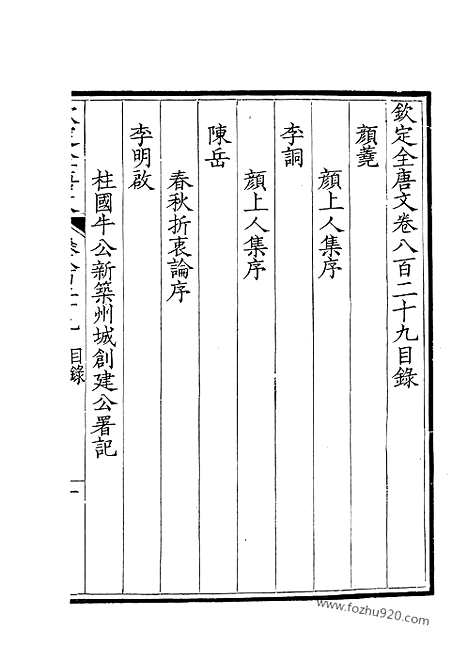 欽定全唐文卷八百二十九目錄
顏蕘
顏上人集序
李詷
顏上人集序
陳岳
春秋折衷論序
李明啟
柱國牛公新築州城創建公署記
目錄
一
www.fozhu920.com